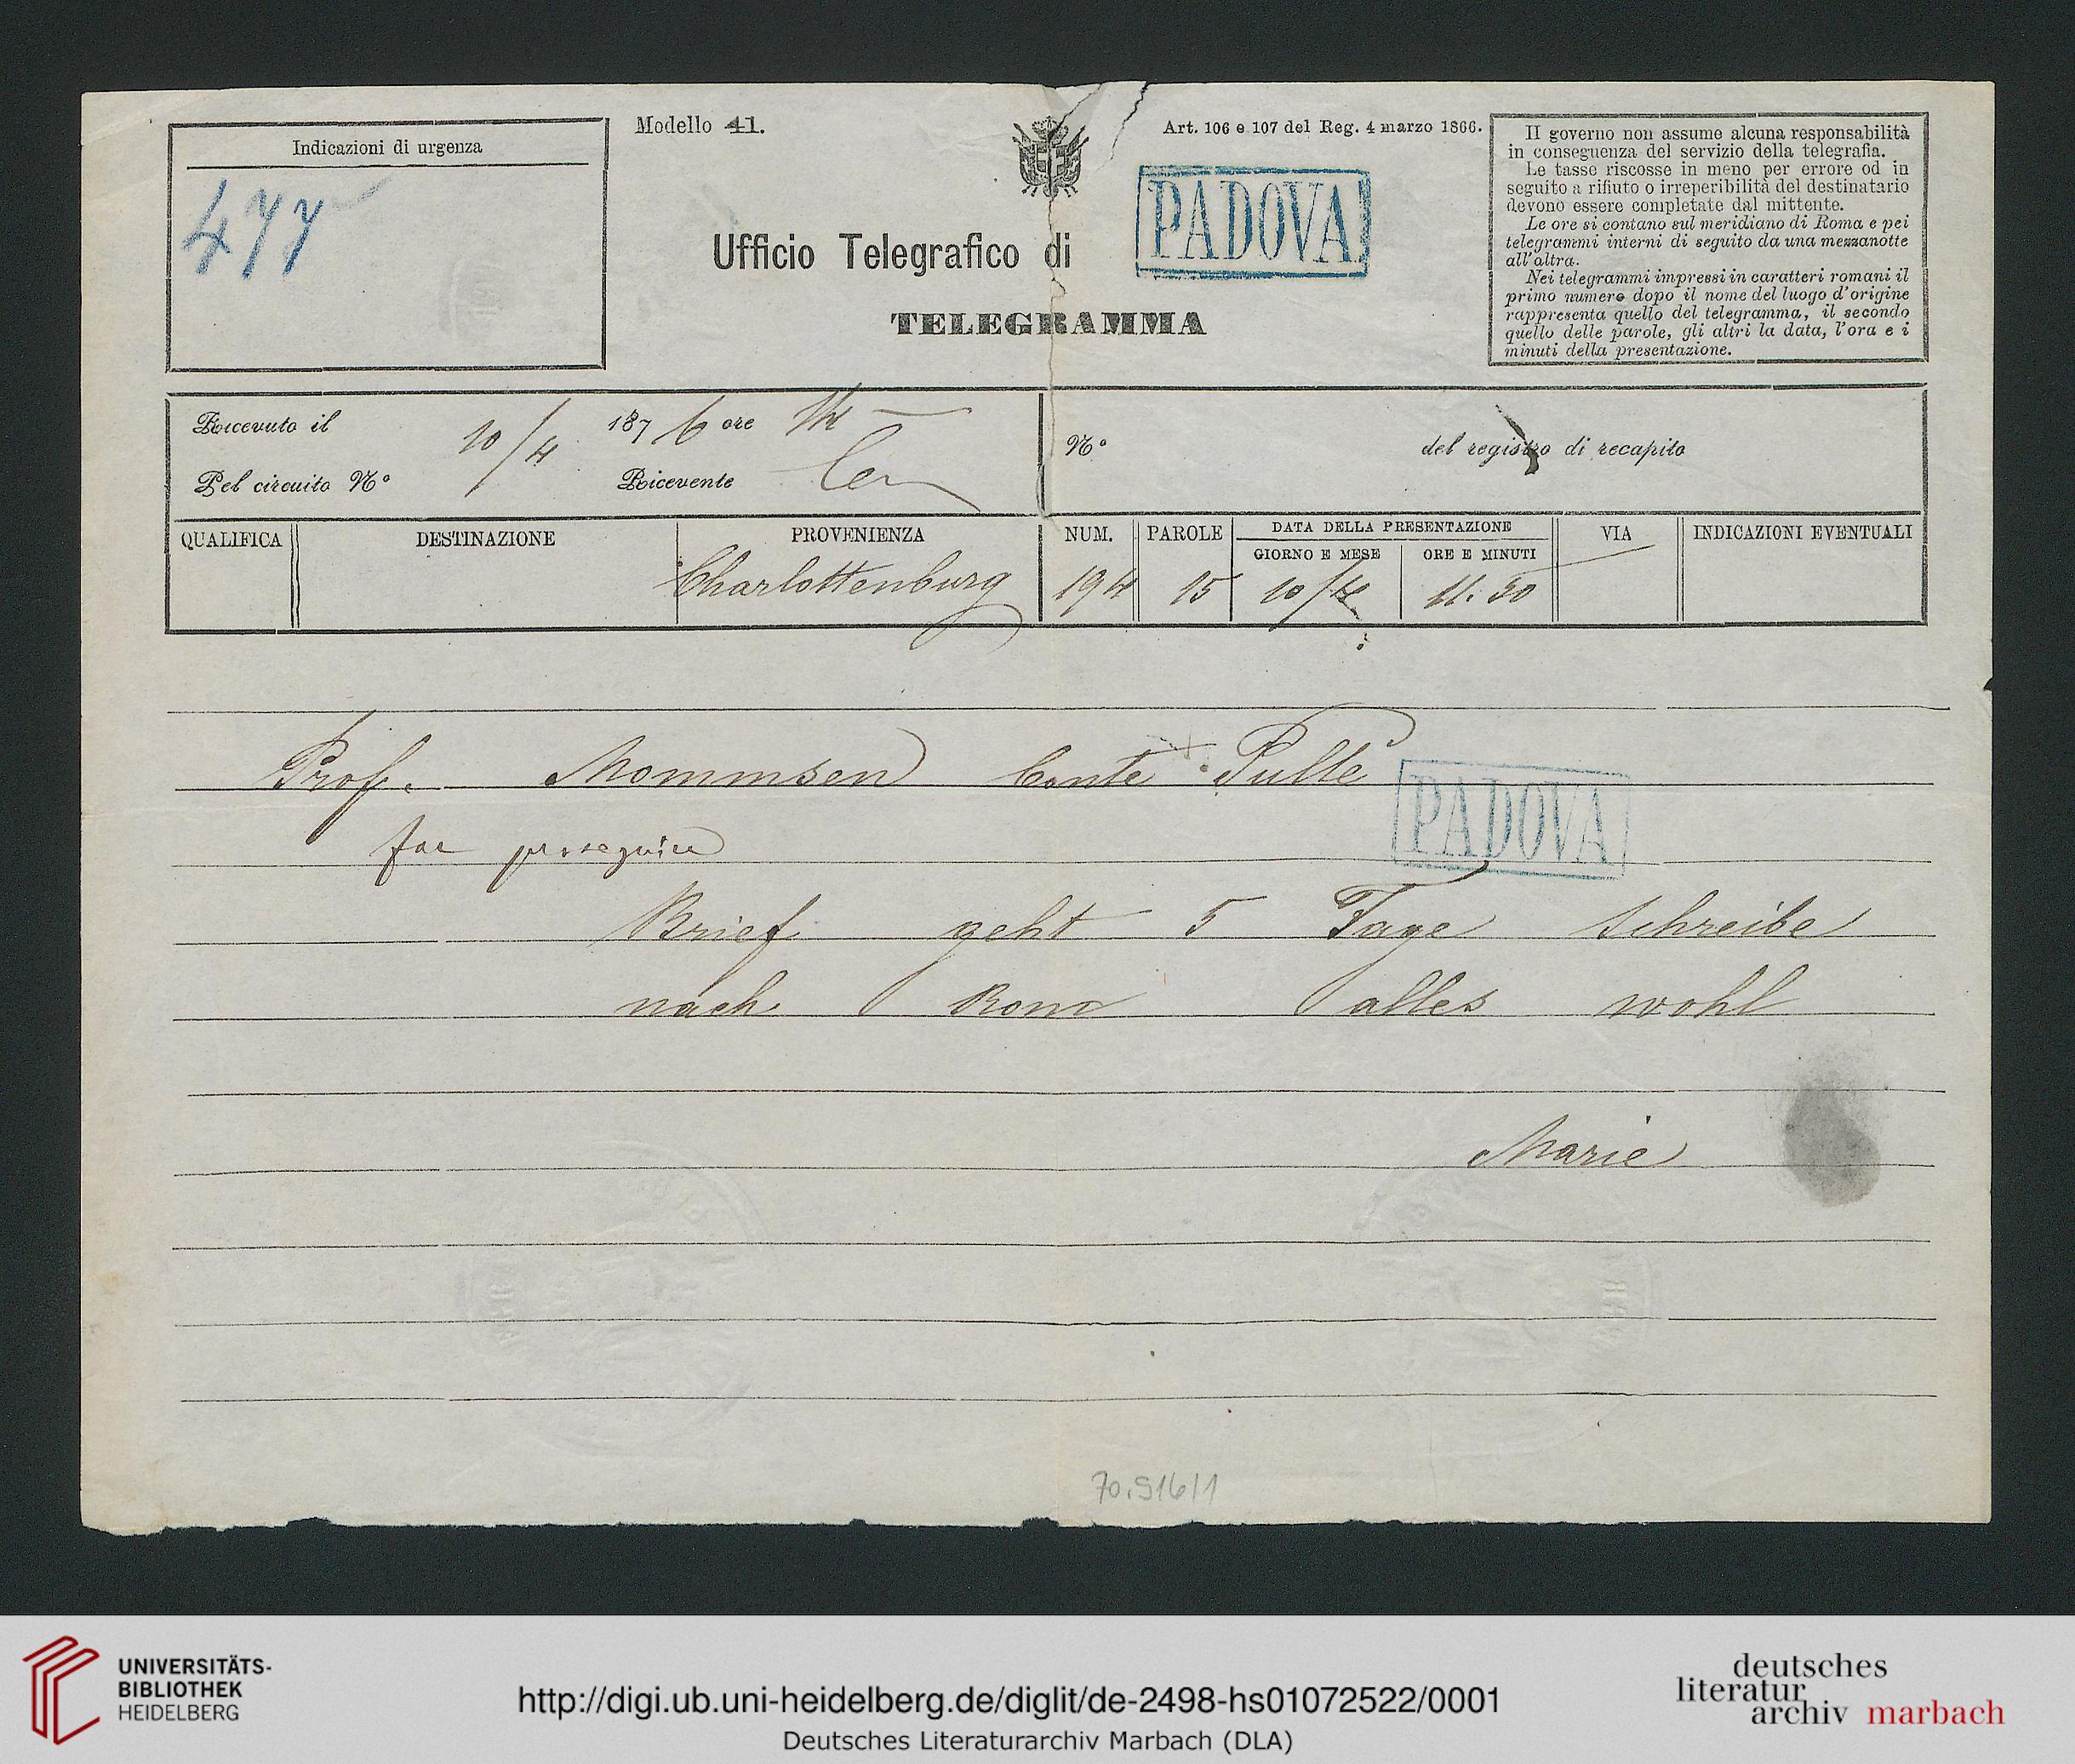 Indicazioni di urgenza
477
Modello 41.
Art. 106 e 107 del Reg. 4 marzo 1866.
Ufficio Telegrafico di
PADOVA
TELEGRAMMA
Il governo non assume alcuna responsabilità
in conseguenza del servizio della telegrafia.
Le tasse riscosse in meno per errore od in
seguito a rifiuto o irreperibilità del destinatario
devono essere completate dal mittente.
Le ore si contano sul meridiano di Roma e pei
telegrammi interni di seguito da una mezzanotte
all'altra.
Nei telegrammi impressi in caratteri romani il
primo numero dopo il nome del luogo d'origine
rappresenta quello del telegramma, il secondo
quello delle parole, gli altri la data, l'ora e i
minuti della presentazione.
Ricevuto il 10/4 1876 ore
Pel circuito Nº Ricevente
Nº del registro di recapito
QUALIFICA DESTINAZIONE PROVENIENZA NUM. PAROLE DATA DELLA PRESENTAZIONE VIA INDICAZIONI EVENTUALI
GIORNO E MESE ORE E MINUTI
Charlottenburg 194 15 10/4 11.50
Prof. Mommsen Conte Pulle
PADOVA
far proseguire
Brief geht 5 Tage schreibe
nach Rom alles wohl
Marie
70.916/1
UNIVERSITÄTS-
BIBLIOTHEK
HEIDELBERG
http://digi.ub.uni-heidelberg.de/diglit/de-2498-hs01072522/0001
Deutsches Literaturarchiv Marbach (DLA)
deutsches
literatur
archiv marbach